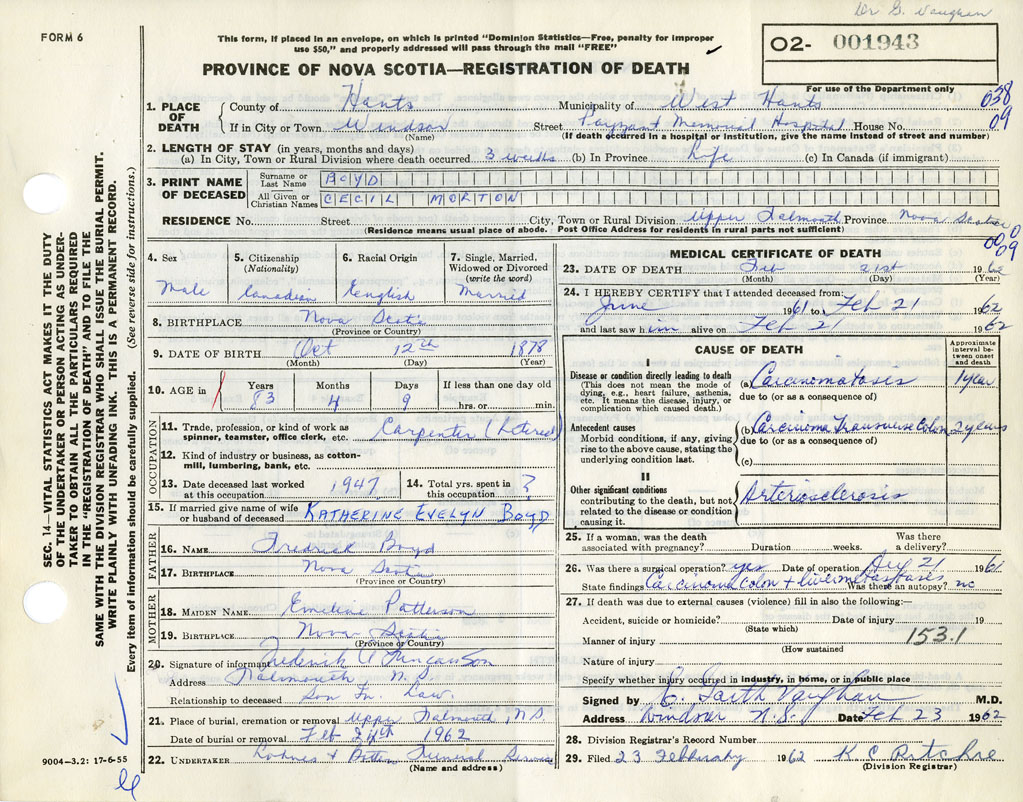 Dr G. Vaughan
FORM 6
This form, if placed in an envelope, on which is printed "Dominion Statistics—Free, penalty for improper
use $50," and properly addressed will pass through the mail "FREE"
02- 001943
PROVINCE OF NOVA SCOTIA—REGISTRATION OF DEATH
For use of the Department only
058
09
1. PLACE OF DEATH
County of Hants Municipality of West Hants
If in City or Town Windsor Street Payzant Memorial Hospital House No.
(Name) (If death occurred in a hospital or institution, give the name instead of street and number)
2. LENGTH OF STAY (in years, months and days)
(a) In City, Town or Rural Division where death occurred 3 weeks (b) In Province Life (c) In Canada (if immigrant)
3. PRINT NAME OF DECEASED
Surname or Last Name BOYD
All Given or Christian Names CECIL MORTON
RESIDENCE No. Street City, Town or Rural Division Upper Falmouth Province Nova Scotia
(Residence means usual place of abode. Post Office Address for residents in rural parts not sufficient)
4. Sex
Male
5. Citizenship
(Nationality)
Canadian
6. Racial Origin
English
7. Single, Married,
Widowed or Divorced
(write the word)
Married
8. BIRTHPLACE Nova Scotia
(Province or Country)
9. DATE OF BIRTH Oct 12th 1878
(Month) (Day) (Year)
10. AGE in Years Months Days If less than one day old
83 4 9 hrs. or min.
OCCUPATION
11. Trade, profession, or kind of work as
spinner, teamster, office clerk, etc. Carpenter (retired)
12. Kind of industry or business, as cotton-
mill, lumbering, bank, etc.
13. Date deceased last worked
at this occupation 1947
14. Total yrs. spent in
this occupation ?
15. If married give name of wife
or husband of deceased KATHERINE EVELYN BOYD
FATHER
16. NAME Fredrick Boyd
17. BIRTHPLACE Nova Scotia
(Province or Country)
MOTHER
18. MAIDEN NAME Emeline Patterson
19. BIRTHPLACE Nova Scotia
(Province or Country)
20. Signature of informant Frederick A
Address Falmouth N S
Relationship to deceased Son In Law.
21. Place of burial, cremation or removal Upper Falmouth, N.S.
Date of burial or removal Feb 24th 1962
22. UNDERTAKER Funeral Service
(Name and address)
00
09
MEDICAL CERTIFICATE OF DEATH
23. DATE OF DEATH Feb 21st 1962
(Month) (Day) (Year)
24. I HEREBY CERTIFY that I attended deceased from:
June 1961 to Feb 21 1962
and last saw him alive on Feb 21 1962
CAUSE OF DEATH
Approximate
interval be-
tween onset
and death
I
Disease or condition directly leading to death
(This does not mean the mode of
dying, e.g., heart failure, asthenia,
etc. It means the disease, injury, or
complication which caused death.)
(a) Carcinomatosis 1 year
due to (or as a consequence of)
Antecedent causes
Morbid conditions, if any, giving
rise to the above cause, stating the
underlying condition last.
(b) Carcinoma Transverse Colon 2 years
due to (or as a consequence of)
(c)
II
Other significant conditions
contributing to the death, but not
related to the disease or condition
causing it.
Arteriosclerosis
25. If a woman, was the death
associated with pregnancy? Duration weeks. Was there
a delivery?
26. Was there a surgical operation? yes Date of operation 21 1961
State findings Carcinoma colon + liver metastases Was there an autopsy? no
27. If death was due to external causes (violence) fill in also the following:—
Accident, suicide or homicide? Date of injury 19
(State which)
Manner of injury 153.1
(How sustained
Nature of injury
Specify whether injury occurred in industry, in home, or in public place
Signed by E. Garth Vaughan M.D.
Address Windsor N.S. Date Feb 23 1962
28. Division Registrar's Record Number
29. Filed 23 February 1962 K C
(Division Registrar)
SEC. 14—VITAL STATISTICS ACT MAKES IT THE DUTY
OF THE UNDERTAKER OR PERSON ACTING AS UNDER-
TAKER TO OBTAIN ALL THE PARTICULARS REQUIRED
IN THE "REGISTRATION OF DEATH" AND TO FILE THE
SAME WITH THE DIVISION REGISTRAR WHO SHALL ISSUE THE BURIAL PERMIT.
WRITE PLAINLY WITH UNFADING INK. THIS IS A PERMANENT RECORD.
Every item of information should be carefully supplied. (See reverse side for instructions.)
9004-3.2: 17-6-55